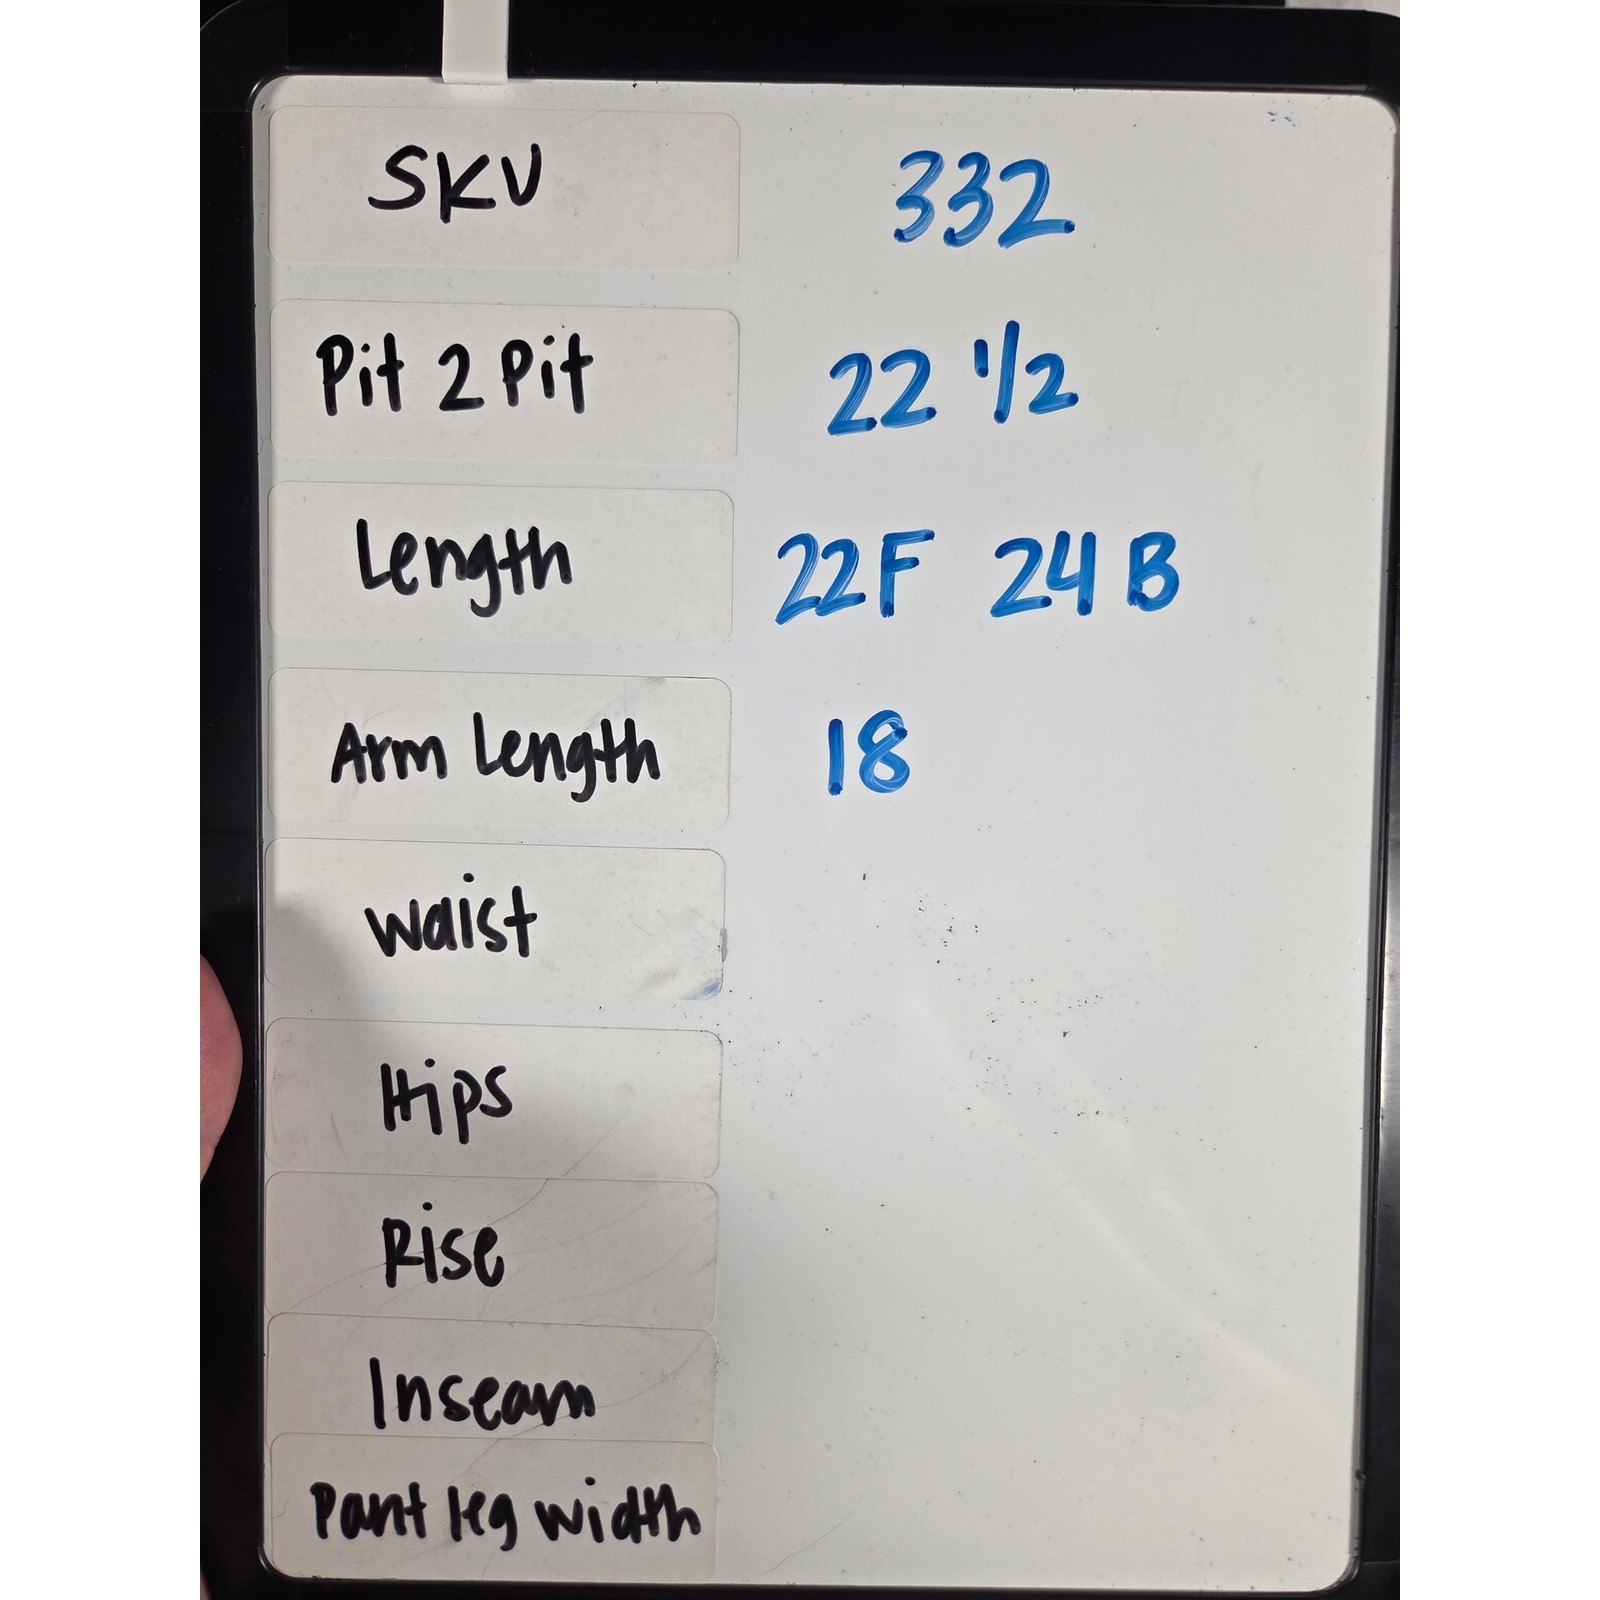 SKU 332
Pit 2 Pit 22 1/2
Length 22F 24B
Arm Length 18
Waist
Hips
Rise
Inseam
Pant leg width